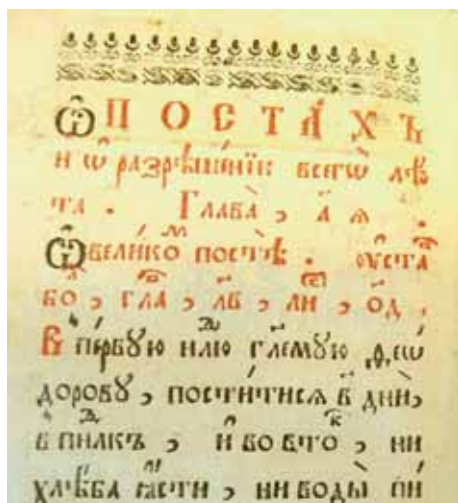 Ѡ ПОСТА́ХЪ
и ѡ разрѣше́нїи всегѡ̀ лѣ́
та . Глава̀ , а҃ ѧ .
Ѡ вели́ко посты̀ . оу҆ста
во , гла , л҃в , ли , ѻ҆д ,
В пе́рвую нлю гл҃емую ,ѳ,еѡ
дорову , пости́тисѧ в҃ днѝ ,
в пнлкъ , и҆ во вто , ни
хлѣ́ба ꙗ҆сти , ни воды̀ пи